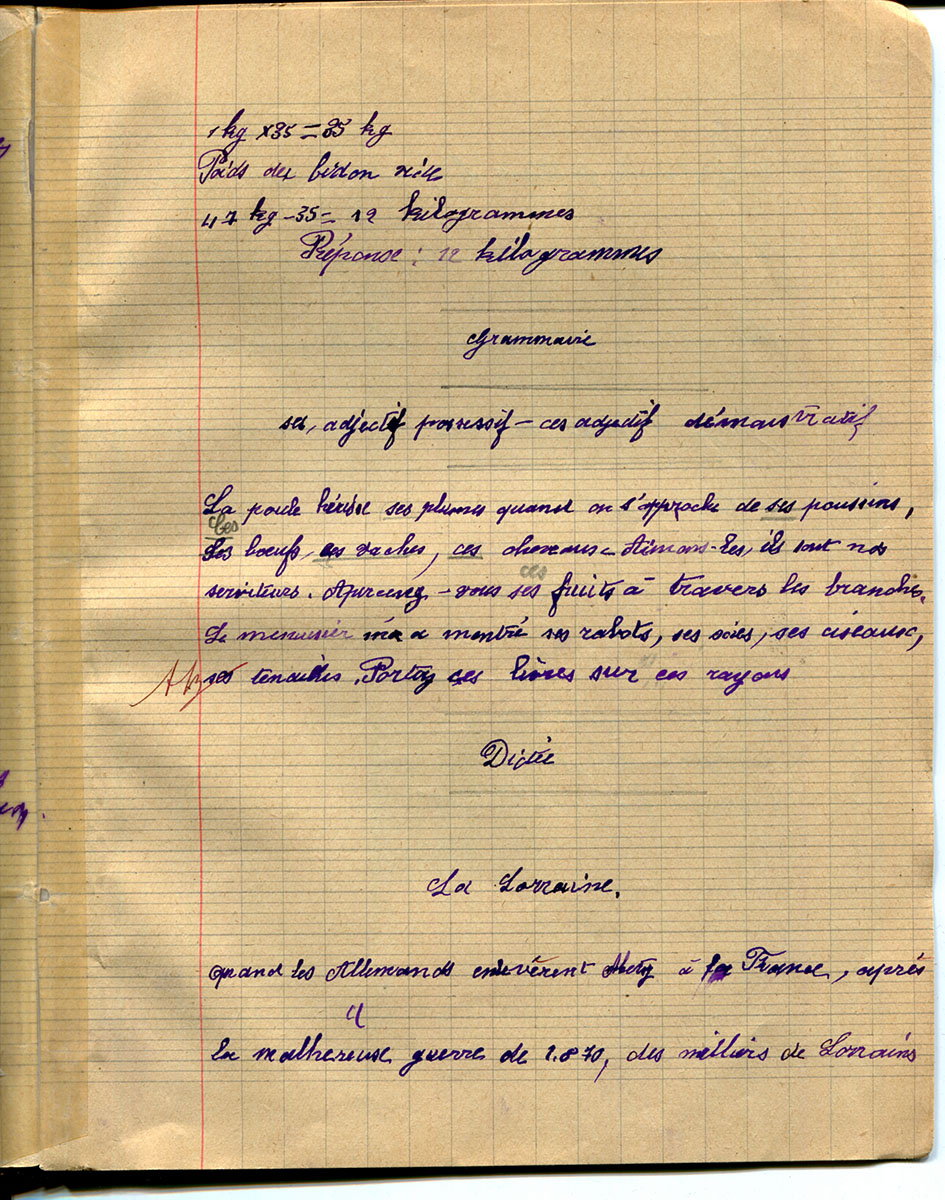 1 kg x35 = 35 kg
Poids du bidon vide
47 kg - 35 = 12 kilogrammes
Réponse : 12 kilogrammes
Grammaire
ses, adjectif possessif - ces adjectif démonstratif
La poule hérisse ses plumes quand on s'approche de ses poussins,
Ces
Les bœufs, ces vaches, ces chevaux. Aimons-les, ils sont nos
ces
serviteurs. Apercevez-vous ses fruits à travers les branches.
Le menuisier m'a montré ses rabots, ses scies, ses ciseaux,
ses tenailles. Portez ces livres sur ces rayons
Dictée
La Lorraine.
Quand les Allemands enlevèrent Metz à la France, après
u
la malhereuse guerre de 1.870, des milliers de Lorrains